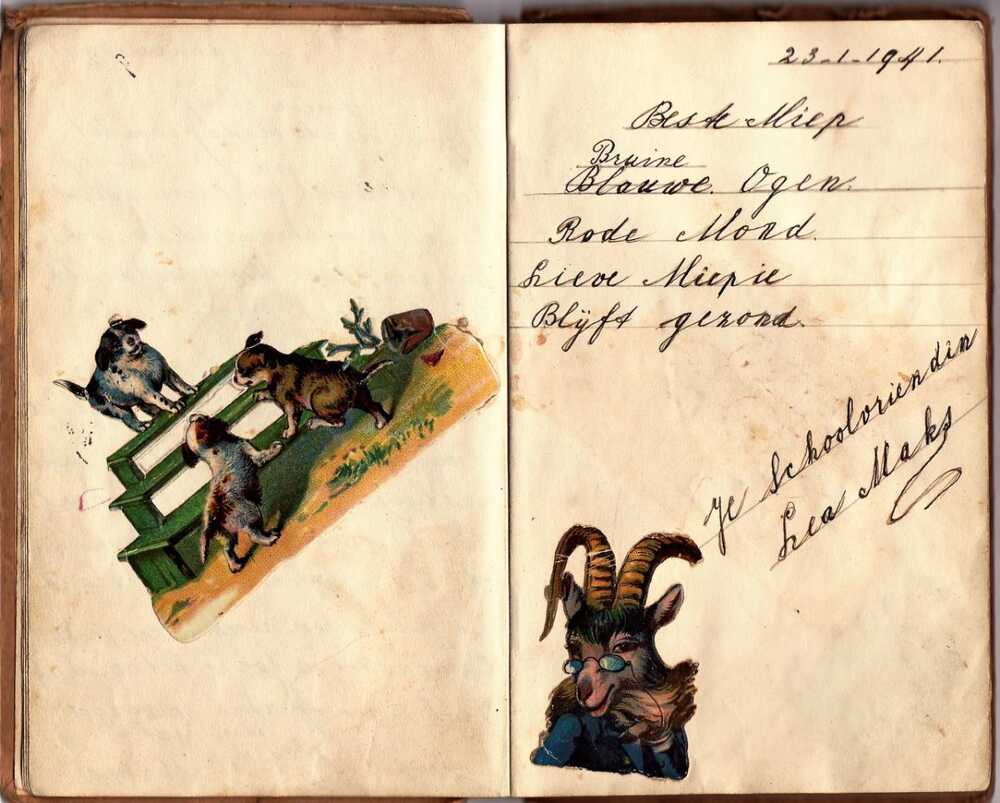 23-1-1941.
Beste Miep
Bruine
Blauwe. Ogen.
Rode Mond.
Lieve Miepie
Blijft gezond.
Je Schoolvriendin
Lea Maks